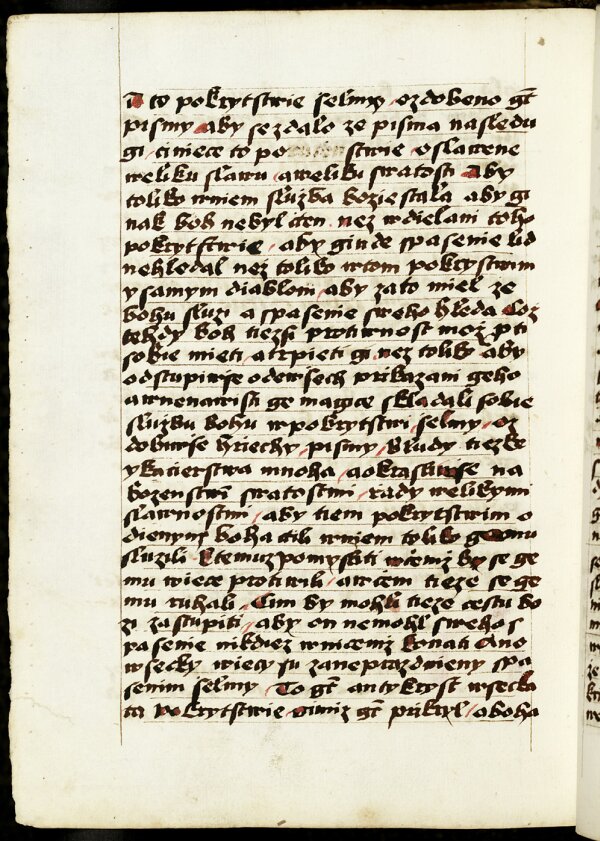 a to pokrytstwie selmy ozdobeno gt
pismy aby se zdalo ze pisma nasledu
gi cziniece to po stwie oslawene
weliku slawu a weliku swatosti Aby
toliko w niem sluzba bozie stala aby gi
nak boh nebyl cten nez w dielani toho
pokrytstwie aby ginde spasenie lid
nehledal nez toliko w tom pokrystwim
y samym diablom aby za to miel ze
bohu sluzi a spasenie sweho hleda Coz
tehdy boh tiezsi protiwnost moz pti
sobie mieti a trpieti gi nez toliko aby
odstupiwsse od wssech prikazani geho
a w nenawisti ge magice skladali sobie
sluzbu bohu w pokrytstwi selmy oz
dobiwsse hriechy pismy bludy tiezke
y kacierstwa mnoha a okrasliwsse na
bozenstwi swatostmi rady welikymi
slawnostmi aby tiem pokrytstwim o
dienym boha ctili w niem toliko gemu
sluzili K temuz pomysliti by se ge
mu wiece protiwili a wcem tieze se ge
mu ruhali Cim by mohli tieze cestu bo
zi zastupiti aby on nemohl sweho s
pasenie nikdiez w niczemz konati Ano
wsecky wiecy su zaneprazdnieny spa
senim selmy To gt antykryst wsecka
ta pokrytstwie gimiz gt prikryl a boha